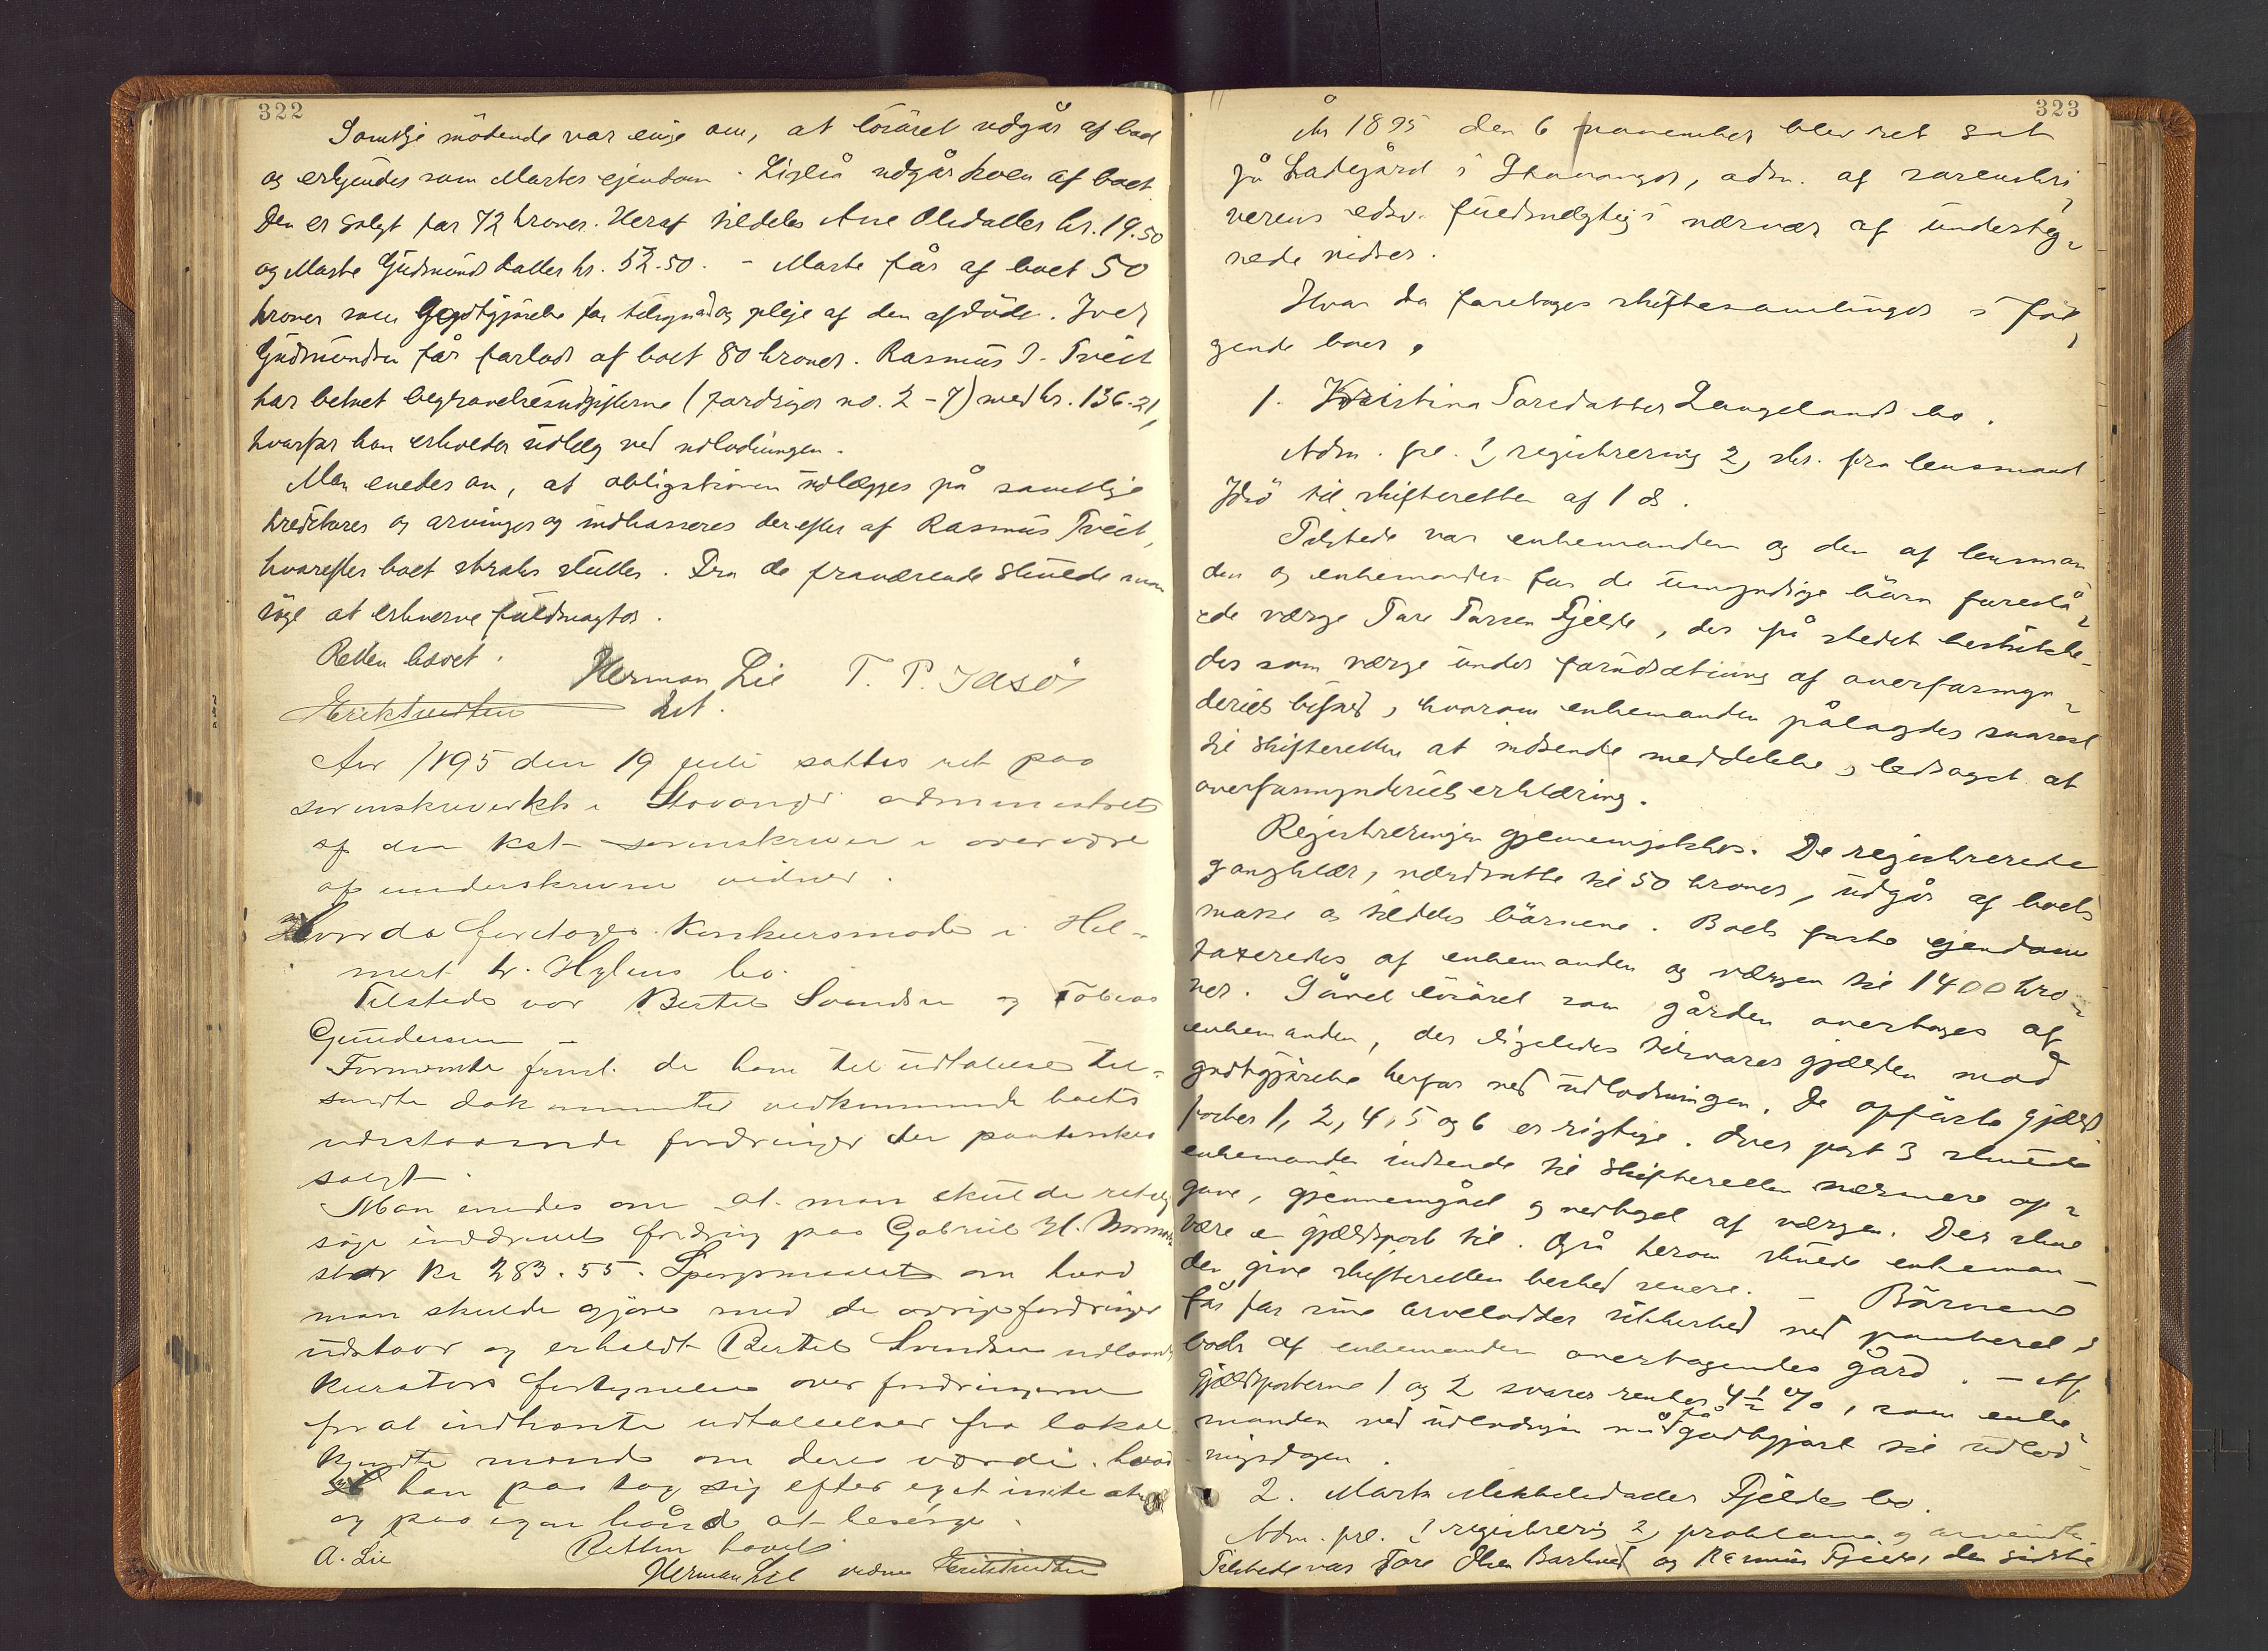 322
Samtlige mödende var enige om, at lösöret udgår af boet
og erkjendes som Martes ejendom. Ligeså udgår koen af boet
Den er solgt for 72 kroner. Heraf tildeles Ane Olsdatter kr. 19.50
og Marte Gudmundsdatter kr. 52.50. – Marte får af boet 50
kroner som Godtgjörelse for tilsyn og pleje af den afdöde. Ivar
Gudmundsen får forlods af boet 80 kroner. Rasmus I. Tveit
har betalt begravelsesudgifterne (fordringer no. 2–7) med kr. 136.21,
hvorfor han erholder udlæg ved udlodningen.
Man enedes om, at obligationen udlægges på samtlige
kreditorer og arvinger og indkasseres derefter af Rasmus Tveit,
hvorefter boet straks sluttes. Fra de fraværende skulde man
söge at erhverve fuldmagter.
Retten hævet.
Herman Lie T. P. Idsöe
Erik Knudsen
Aar 1895 den 19 juli sattes ret paa
sorenskriverkt. i Stavanger administrert
af den kst. sorenskriver i overvær
af underskrevne vidner.
Hvorda foretoges konkursmöde i Hel-
mert Hylens bo.
Tilstede var Bertel Svendsen og Tobias
Gundersen
Formænden freml. de ham til udtalelse til-
sendte dokumenter vedkommende boets
udestaaende fordringer der paatænkes
solgt
Man enedes om at man skulde retslig
söge inddrevet fordring paa Gabriel H.
stor kr 283.55. Spörgsmaalet om hvad
man skulde gjöre med de övrige fordringer
udstaar og erholdt Bertel Svendsen udlaant
kurators fortegnelse over fordringerne
for at indhente udtalelser fra lokal
kjendte mænd om deres værdi. hvad
han paatog sig efter eget
og paa egen haand at besörge.
Retten hævet.
A. Lie
Herman Lie vidner Erik Knudsen
323
År 1895 den 6 november blev ret sat
på Ladegård i Stavanger, adm. af sorenskri
verens edsv. fuldmægtig i nærvær af underteg-
nede vidner.
Hvor da foretoges skiftesamlinger i föl
gende boer,
1. Kristina Toresdatter Langelands bo.
Adm. frl. 1, registrering 2, skr. fra lensmand
Idsö til skifteretten af 1 ds.
Tilstede var enkemanden og den af lensman
den og enkemanden for de umyndige börn foreslå-
ede værge Tore Torsen Fjelde, der på stedet beskikke-
des som værge under forudsætning af overformyn-
deriets bifald, hvorom enkemanden pålagdes snarest
til skifteretten at indsende meddelelse, ledsaget at
overformynderiets erklæring.
Registreringen gjennemgikkes. De registrerede
gangklær, værdsatte til 50 kroner, udgår af boets
masse og tildeles börnene. Boets faste ejendom
taxeredes af enkemanden og værgen til 1400 kro-
ner. Såvel lösöret som gården overtages af
enkemanden, der ligeledes tilsvarer gjælden mod
godtgjörelse herfor ved udlodningen. De opförte gjælds
poster 1, 2, 4, 5 og 6 er rigtige. Over post 3 skulde
enkemanden indsende til skifteretten nærmere op-
gave, gjennemgået og vedtaget af værgen. Der skal
være en gjældspost til. Også herom skulde enkeman-
den give skifteretten besked senere. – Börnene
får for sine arvelodder sikkerhed ved panteret i
boets af enkemanden overtagendes gård. – Af
gjældsposterne 1 og 2 svares renter 4½ %, som enke-
manden ved udlodningen må få godtgjort til udlod-
ningsdagen.
2. Marta Mikkelsdatter Fjeldes bo.
Adm. frl. 1 registrering 2, proklama og
Tilstede var Tore Olsen Barkved og Rasmus Fjelde, den sidste